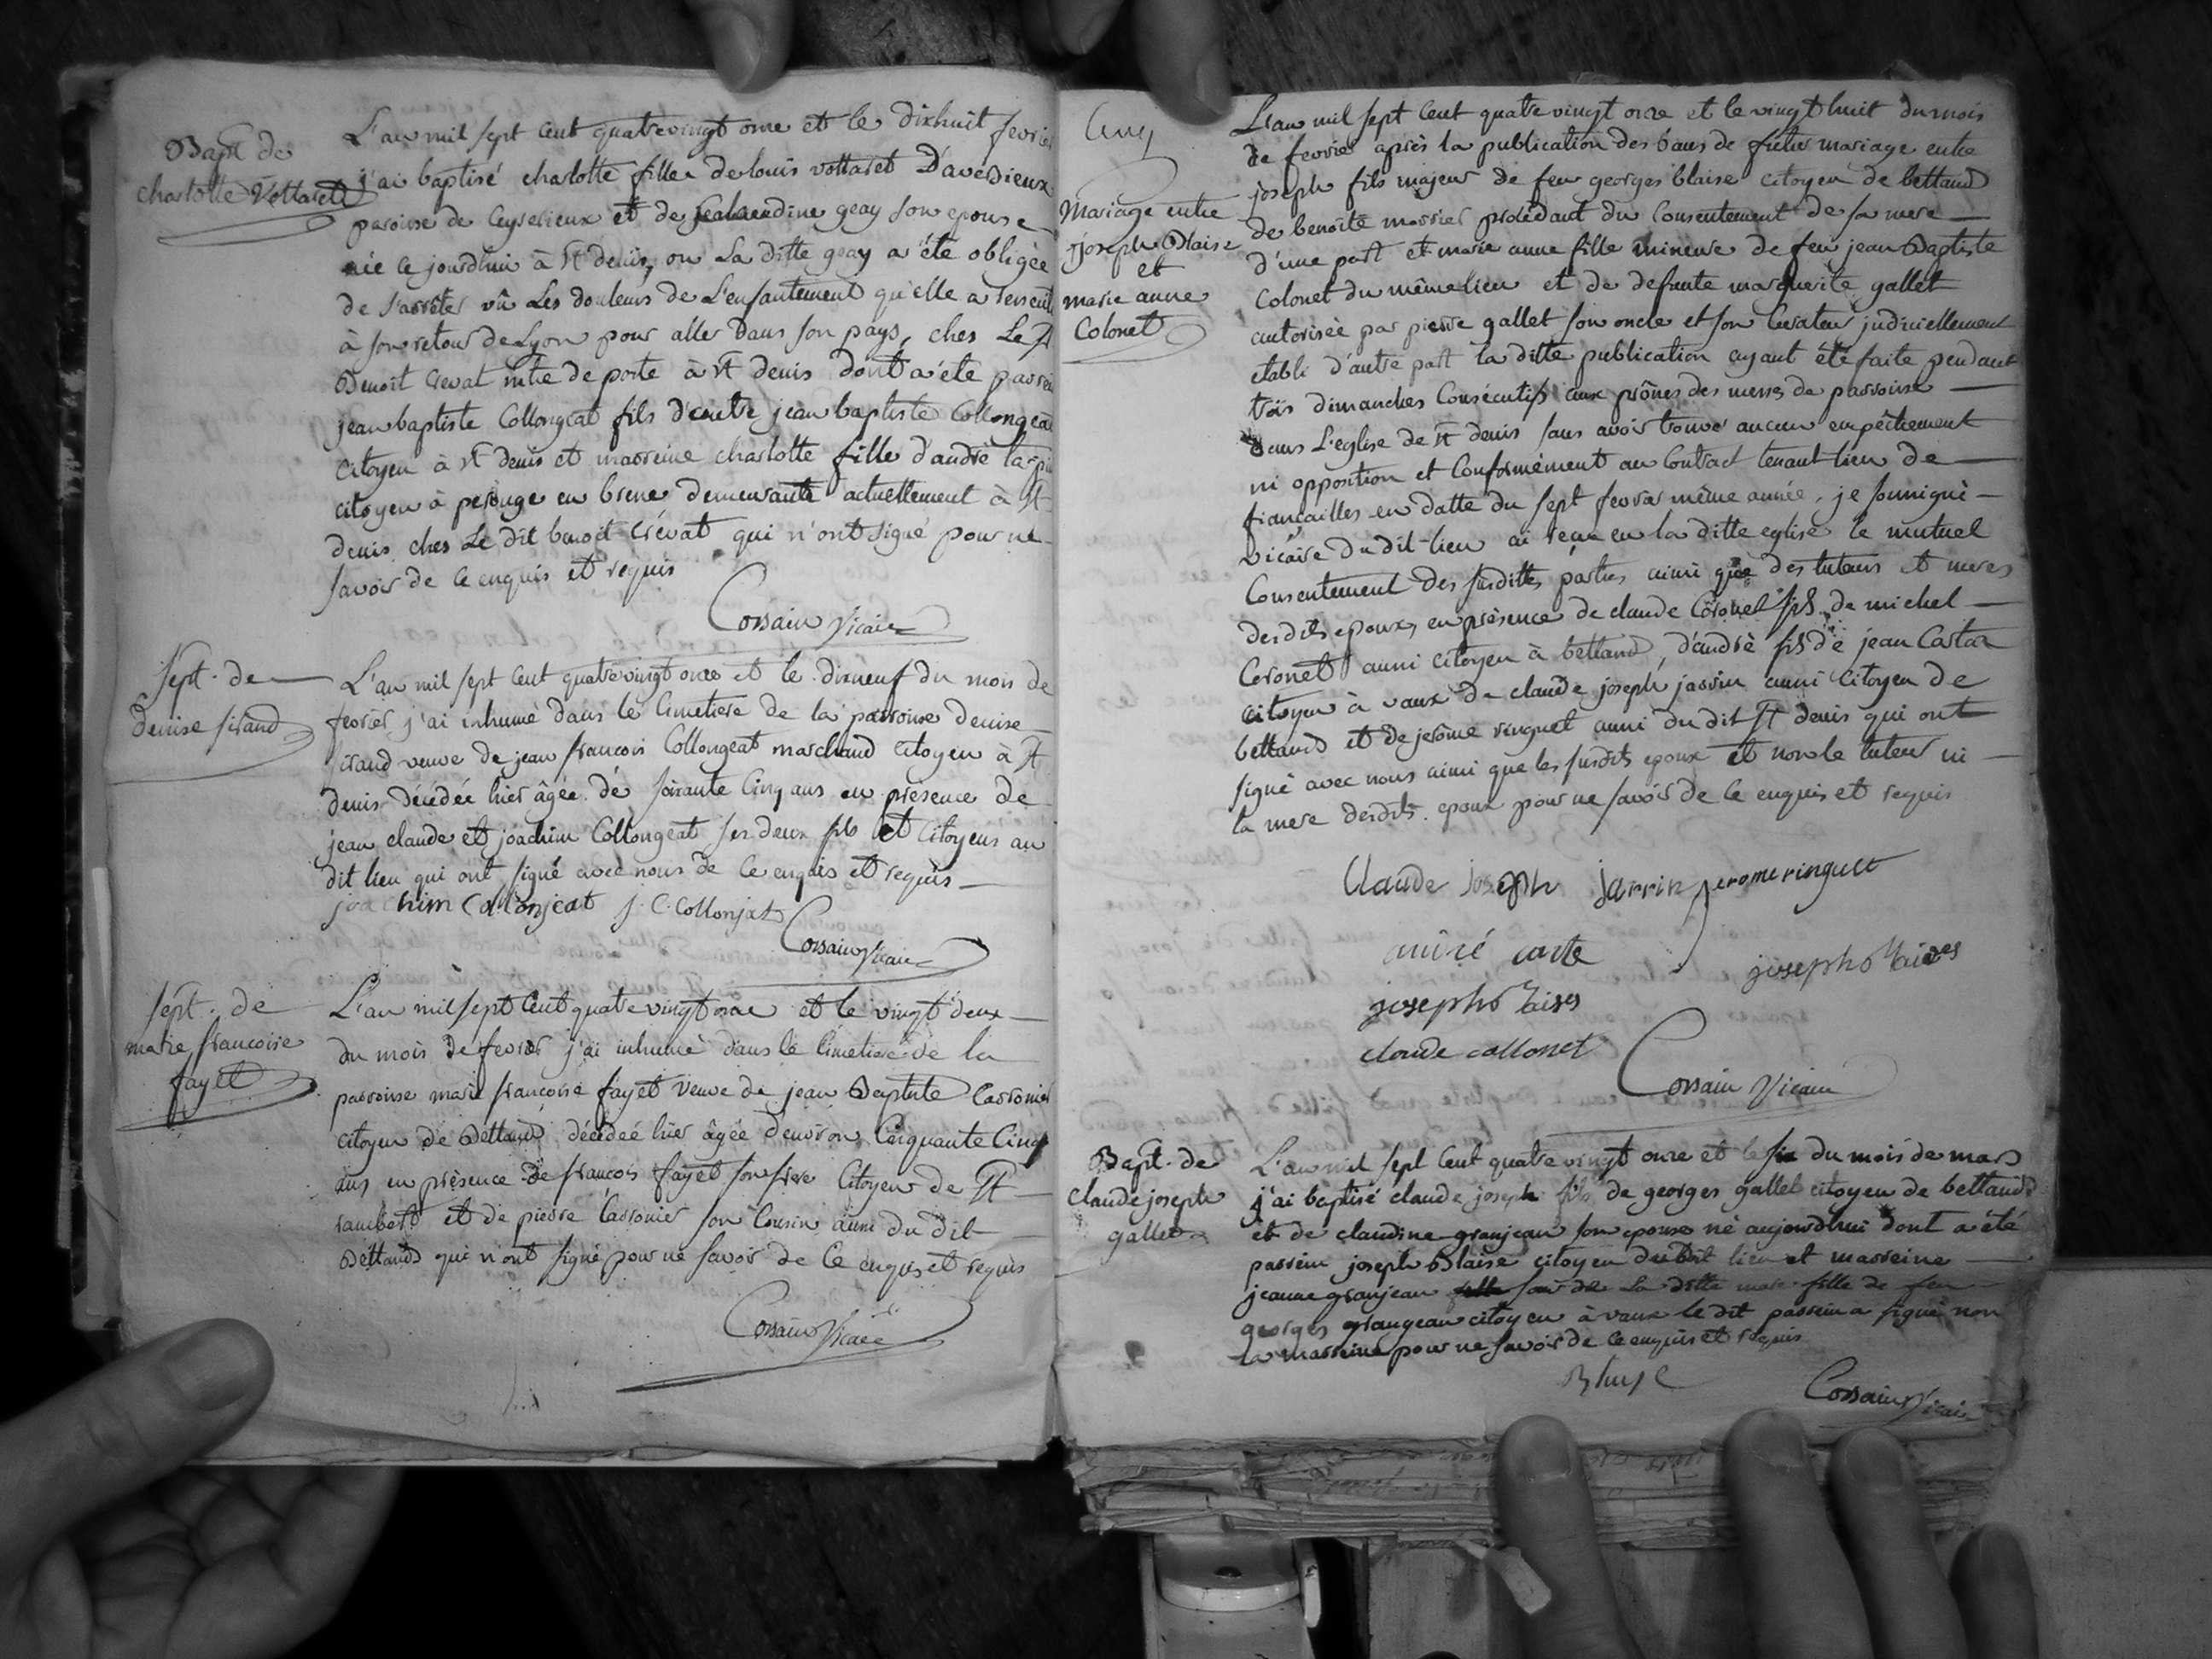 Bapt. de
charlotte Vottaret
L'an mil sept cent quatrevingt onze et le dixhuit fevrier
j'ai baptisé charlotte fille de louis vottaret D'avedieux
paroisse de Ceyserieux et de claudine geay son epouse
née ce jourdhui à st denis, ou La ditte geay a été obligée
de s'arrêter vû Les douleurs de L'enfantement qu'elle a ressenti
à son retour de Lyon pour aller Dans son pays, ches Le Sr
Benoit Crevat mtre de poste à st denis dont a été parrein
jean baptiste Collongeat fils d'autre jean baptiste Collongeat
Citoyen à st denis et marreine charlotte fille d'andré
citoyen à perouge en bresse demeurante actuellement à st
denis ches Le dit benoit Crévat qui n'ont signé pour ne
savoir de ce enquis et requis
Corsain Vicaire
Sept. de
denise sirand
L'an mil sept cent quatrevingt onze et le dixneuf du mois de
fevrier j'ai inhumé dans le Cimetiere de la parroisse denise
sirand veuve de jean francois Collongeat marchand citoyen à st
denis décédée hier âgée de soixante Cinq ans en presence de
jean claude et joachim Collongeat ses deux fils et Citoyens au
dit lieu qui ont signé avec nous de ce enquis et requis
joachim Collonjeat J. C. Collonjat
Corsain Vicaire
Sept. de
marie francoise
fayet
L'an mil sept Cent quatrevingt onze et le vingt deux
du mois de fevrier j'ai inhumé dans le Cimetiere de la
parroisse marie francoise fayet veuve de jean Baptiste Carronier
citoyen de Bettand décédée hier âgée d'environ Cinquante Cinq
ans en présence de francois fayet son frere Citoyen de St
rambert et de pierre Carronier son Cousin aussi du dit
Bettand qui n'ont signé pour ne savoir de Ce enquis et requis
Corsain Vicaire
Cinq
Mariage entre
joseph Blaise
et
marie anne
Colonet
L'an mil sept Cent quatre vingt onze et le vingt huit du mois
de fevrier après la publication des bans de futur mariage entre
joseph fils majeur de feu georges blaise citoyen de bettand
de benoite marrier procédant du Consentement de sa mere
d'une part et marie anne fille mineure de feu jean Baptiste
Colonet du même lieu et de defunte marguerite gallet
autorisée par pierre gallet son oncle et son Curateur judiciellement
etabli d'autre part la ditte publication ayant été faite pendant
trois dimanches Consécutifs aux prônes des messes de parroisse
dans L'eglise de st denis sans avoir trouvé aucun empêchement
ni opposition et Conformément au Contract tenant lieu de
fiançailles en datte du sept fevrier même année, je soussigné
vicaire du dit lieu ai reçu en la ditte eglise le mutuel
Consentement des susdittes parties ainsi que des tuteurs et meres
desdits epoux, en présence de claude Coronet fils de michel
Coronet aussi citoyen à bettand, d'andré fils de jean Cartaz
citoyen à vaux de claude joseph jarrin aussi Citoyen de
bettand et de jerôme ringuet aussi du dit St denis qui ont
signé avec nous ainsi que les susdits epoux et non le tuteur ni
la mere desdits epoux pour ne savoir de ce enquis et requis
Claude joseph jarrin jerome ringuet
andré carte
joseph blaises
joseph blaises
claude collonet
Corsain Vicaire
Bapt. de
Claude joseph
gallet
L'an mil sept Cent quatre vingt onze et le six du mois de mars
j'ai baptisé claude joseph fils de georges gallet citoyen de bettand
et de claudine granjean son epouse né aujourdhui dont a été
parrein joseph Blaise citoyen du dit lieu et marreine
jeanne granjean soeur de La ditte mere fille de feu
georges grangean citoyen à vaux le dit parrein a signé non
la marreine pour ne savoir de ce enquis et requis
Blaise
Corsain Vicaire